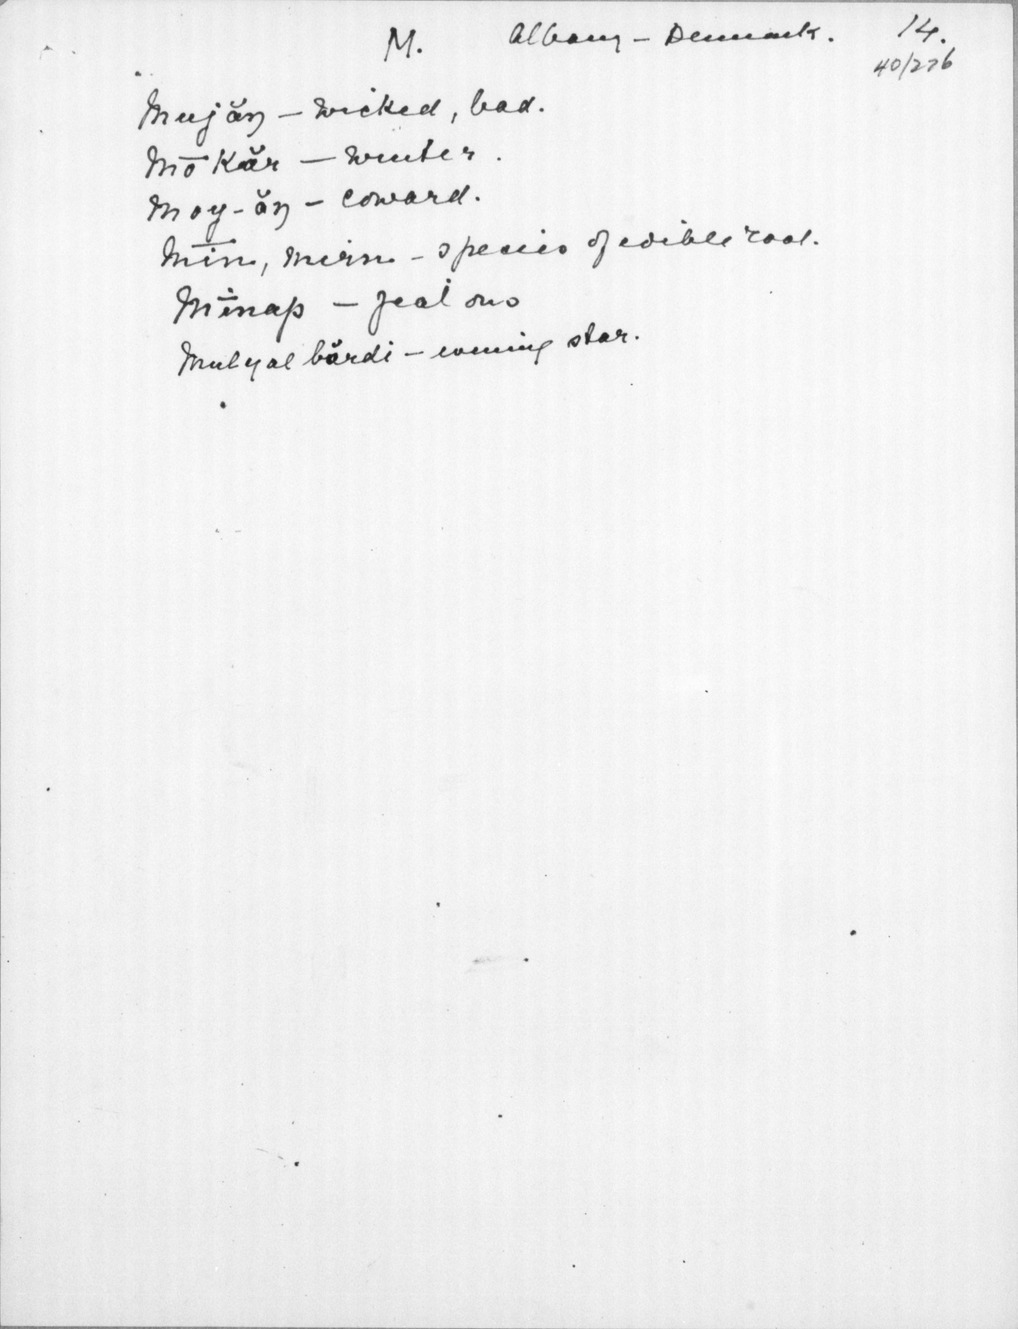 M. Albany - Denmark. 14.
40/276
Mujăŋ - wicked, bad.
Mō Kăr - winter.
Moy-ăŋ - coward.
Mīn, mirn - species of edible root.
Mīnap - jealous
Mulyal bărdi - evening star.